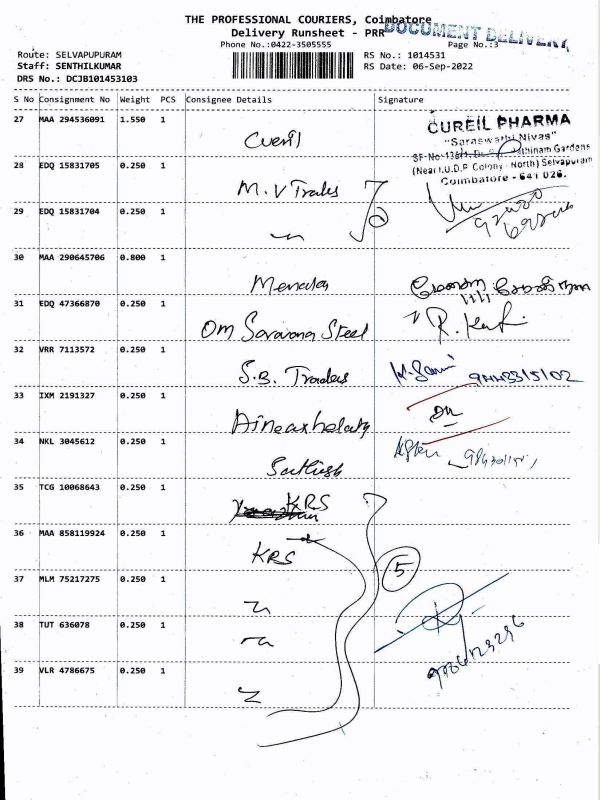 THE PROFESSIONAL COURIERS, Coimbatore
Delivery Runsheet - PRR
DOCUMENT DELIVERY
Phone No.:0422-3505555
Page No.:3
Route: SELVAPUPURAM
RS No.: 1014531
Staff: SENTHILKUMAR
RS Date: 06-Sep-2022
DRS No.: DCJB101453103
S No Consignment No Weight PCS Consignee Details Signature
27 MAA 294536091 1.550 1
Cureil
CUREIL PHARMA
"Saraswathi Nivas"
(Near T.U.D.P Colony - North) Selvapuram
Coimbatore - 641 026.
28 EDQ 15831705 0.250 1
M.V Trades
29 EDQ 15831704 0.250 1
30 MAA 290645706 0.800 1
31 EDQ 47366870 0.250 1
Om Saravana Steel
32 VRR 7113572 0.250 1
S.B. Traders
33 IXM 2191327 0.250 1
34 NKL 3045612 0.250 1
Sathish
35 TCG 10068643 0.250 1
KRS
36 MAA 858119924 0.250 1
KRS
5
37 MLM 75217275 0.250 1
38 TUT 636078 0.250 1
39 VLR 4786675 0.250 1